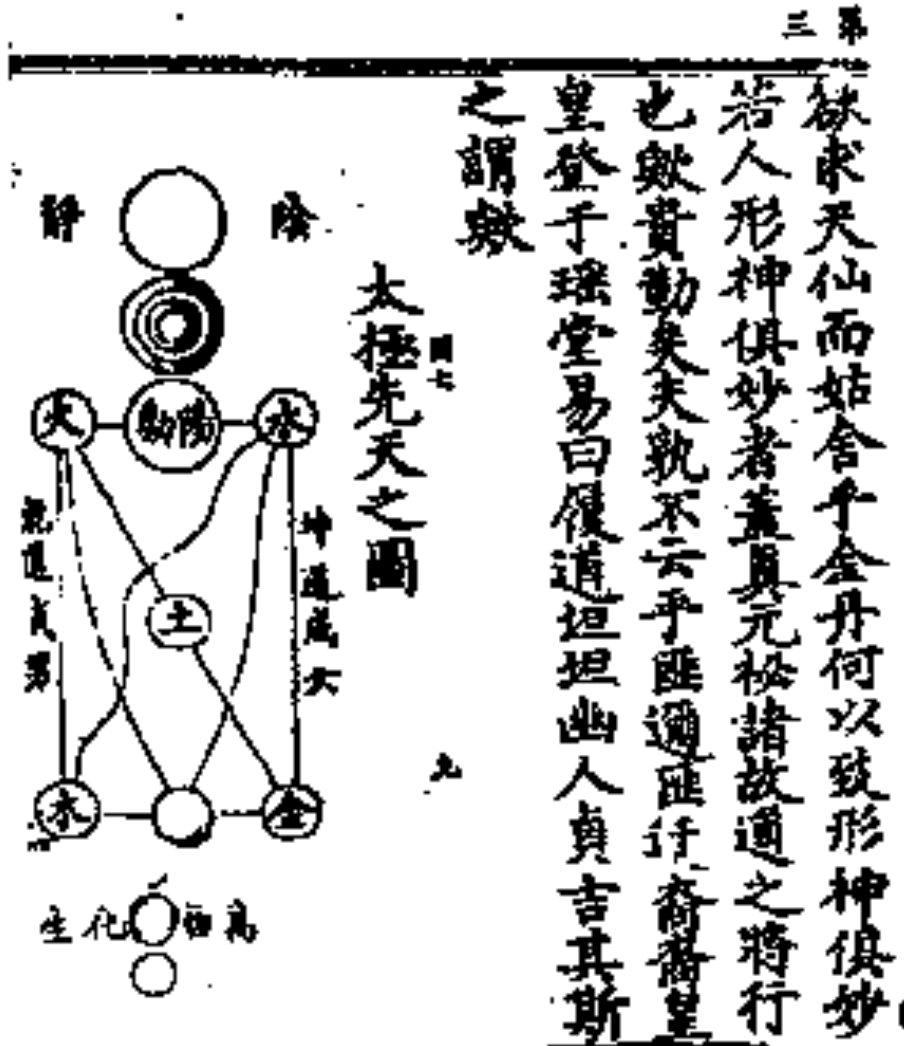 第三
欲求天仙而姑舍乎金丹何以致形神俱妙
若人形神俱妙者蓋真元松諸故通之將行
也歟貴勤矣夫孰不云乎匪邇匪仔裔裔皇
皇登于瑤堂易曰履道坦坦幽人貞吉其斯
之謂歟
圖七
太極先天之圖
九
陰靜
陽動
火
水
土
木
金
坤道成女
乾道成男
萬物化生